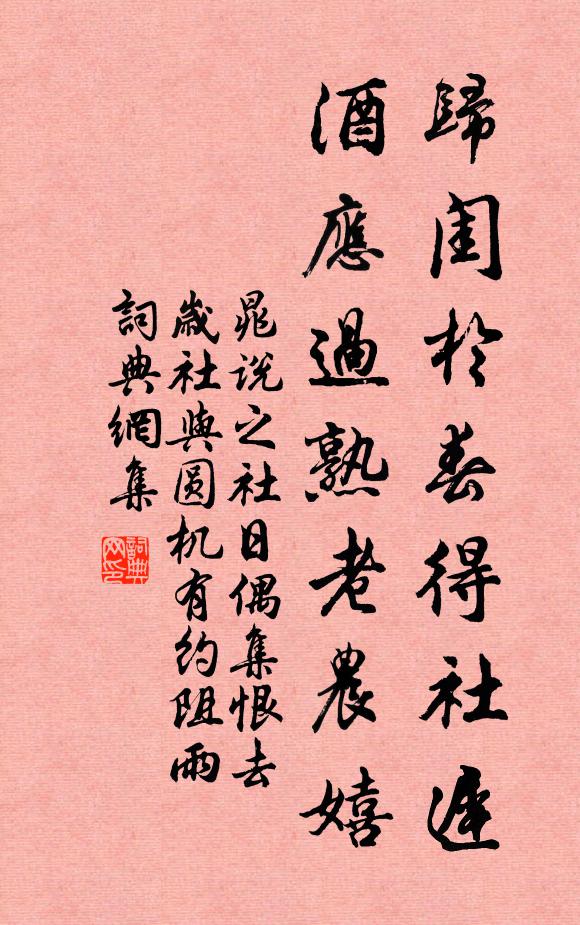 歸閨於春得社遲
酒應過熟老農嬉
晁說之社日偶集恨去
歲社與圓机有約阻雨
詞典網集
詞典网印